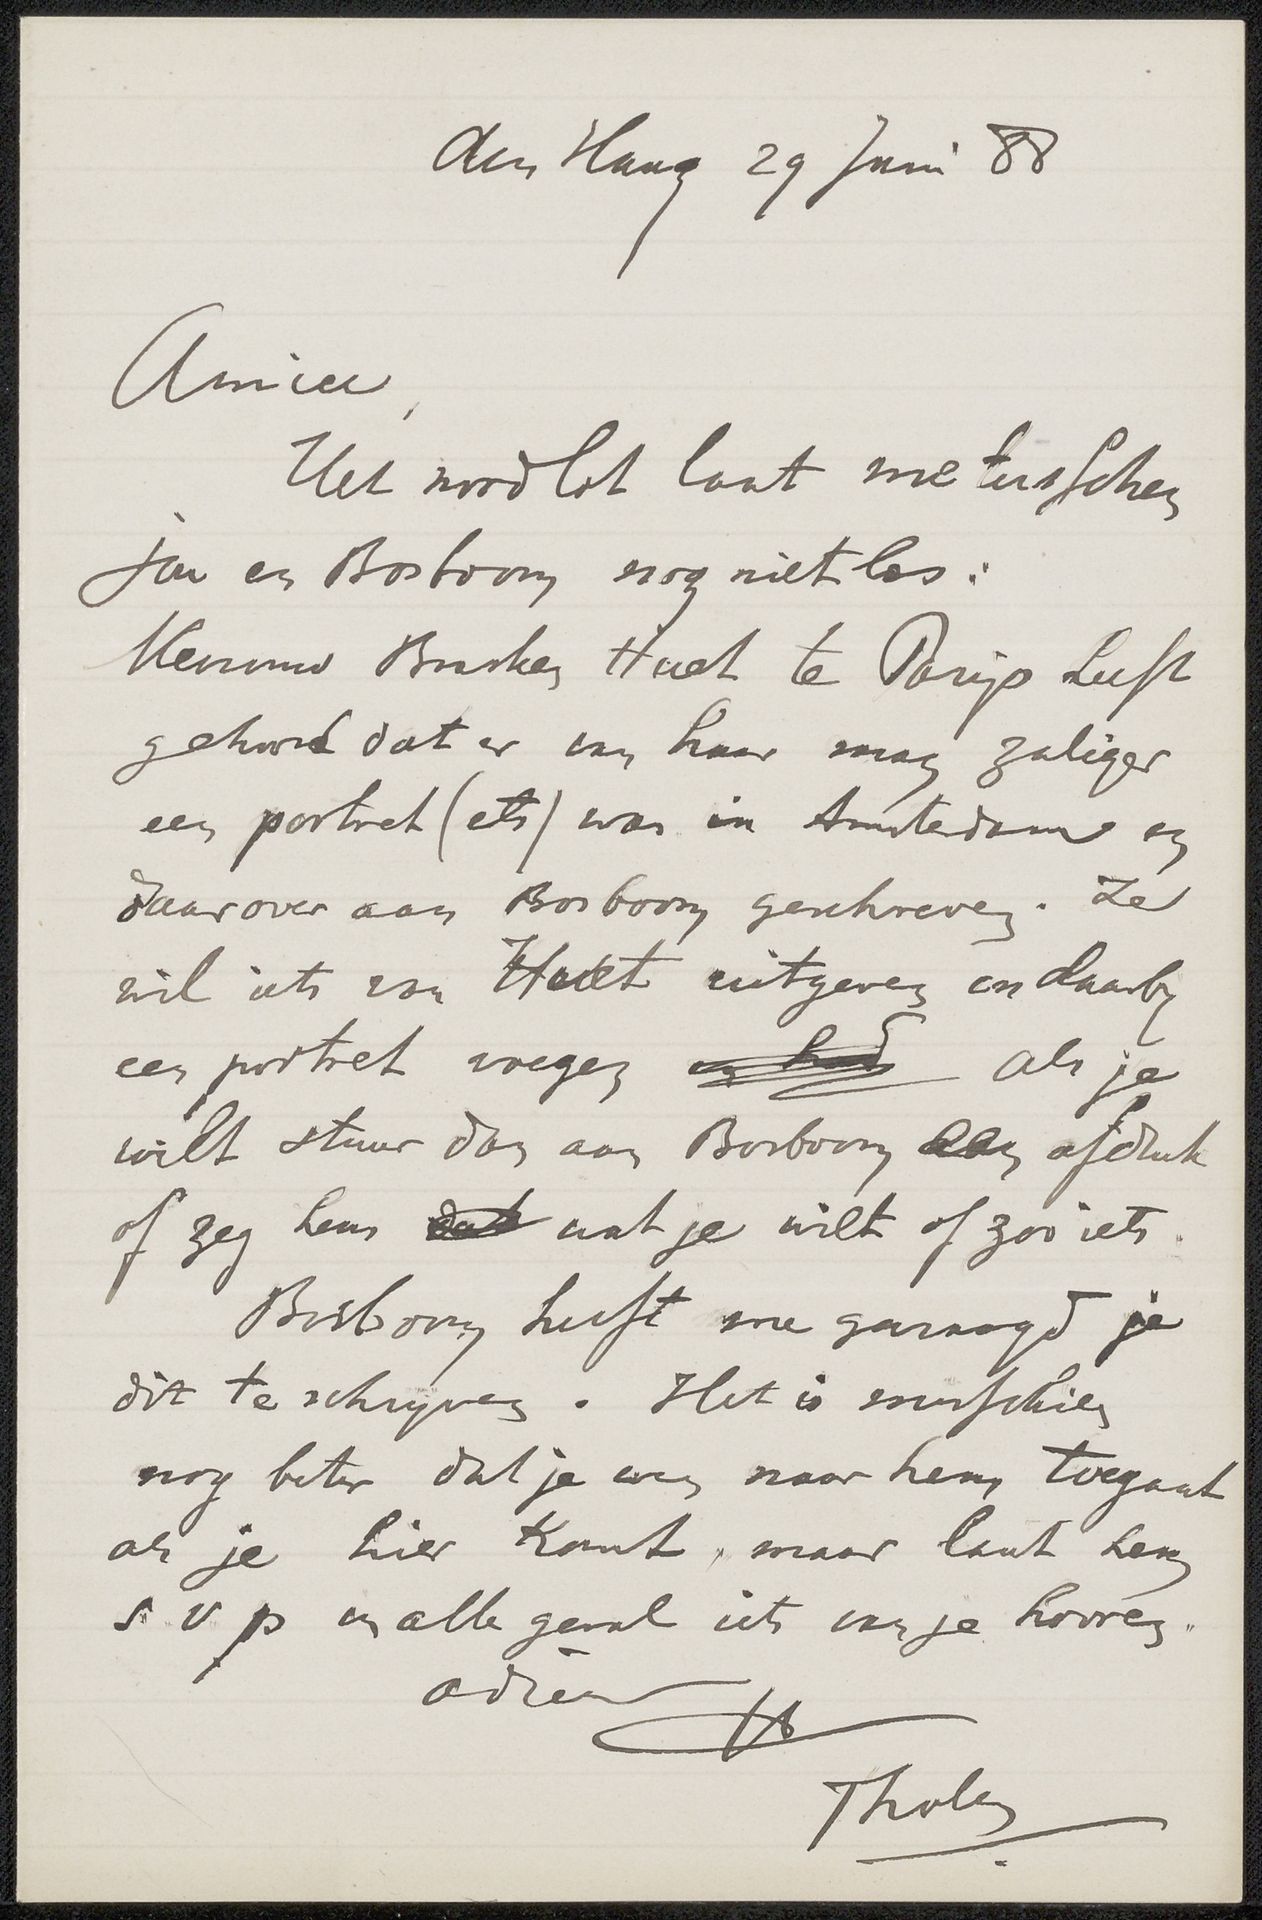 den Haag 29 Juni 88
Amice,
Het noodlot laat me tusschen
jou en Bosboom nog niet los:
Mevrouw Busken Huet te Parijs heeft
gehoord dat er van haar man zaliger
een portret (ets) was in Amsterdam en
daarover aan Bosboom geschreven. Ze
wil iets van Huet uitgeven en daarby
een portret voegen als je
wilt stuur dan aan Bosboom een afdruk
of zeg hem wat je wilt of zoo iets.
Bosboom heeft me gevraagd je
dit te schrijven. Het is misschien
nog beter dat je even naar hem toegaat
als je hier komt, maar laat hem
s v p in alle geval iets van je hooren.
adieu
tt
Tholen